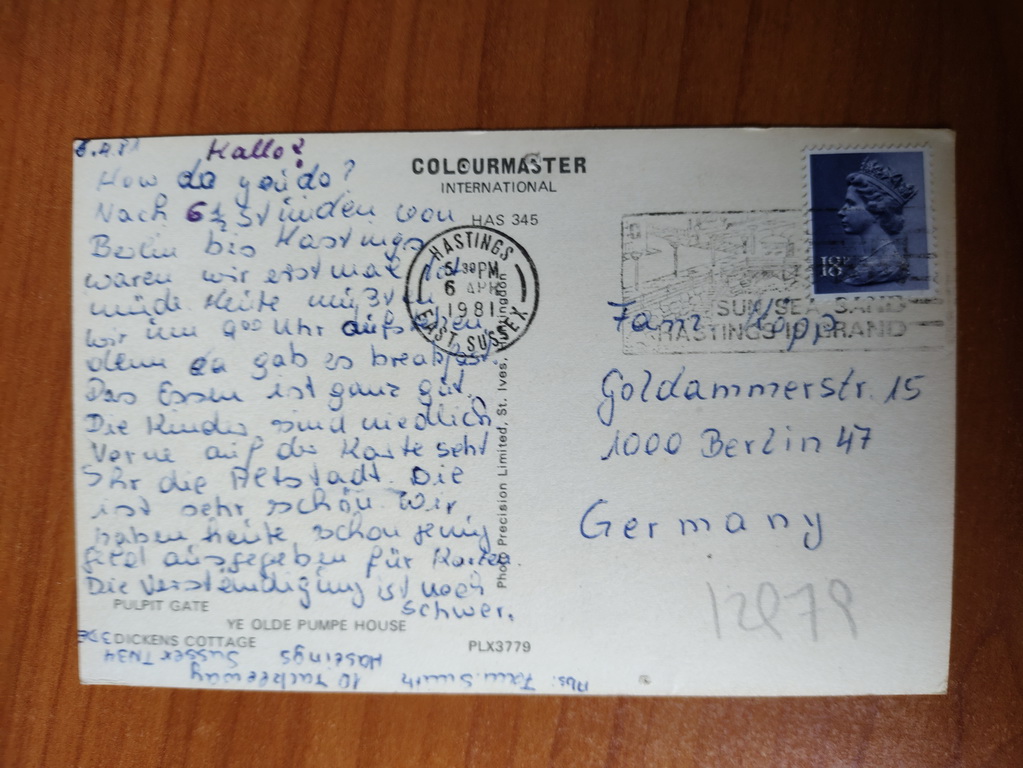 6.4.81 Hallo!
How do you do?
Nach 6½ Stunden von
Berlin bis Hastings
waren wir erstmal
müde. Heute mußten
wir um 9⁰⁰ Uhr aufstehen,
denn da gab es breakfast.
Das Essen ist ganz gut.
Die Kinder sind niedlich
Vorne auf der Karte seht
Ihr die Altstadt. Die
ist sehr schön. Wir
haben heute schon
Geld ausgegeben für Karten.
Die Verständigung ist noch
schwer.
PULPIT GATE
YE OLDE PUMPE HOUSE
DICKENS COTTAGE
PLX3779
Abs: Fam. Smith
10
Hastings
Sussex TN34
COLOURMASTER
INTERNATIONAL
HAS 345
Photo Precision Limited, St. Ives,
HASTINGS
5 30 PM
6 APR
1981
EAST SUSSEX
SUN SEA SAND
HASTINGS IS GRAND
Fam.
Goldammerstr. 15
1000 Berlin 47
Germany